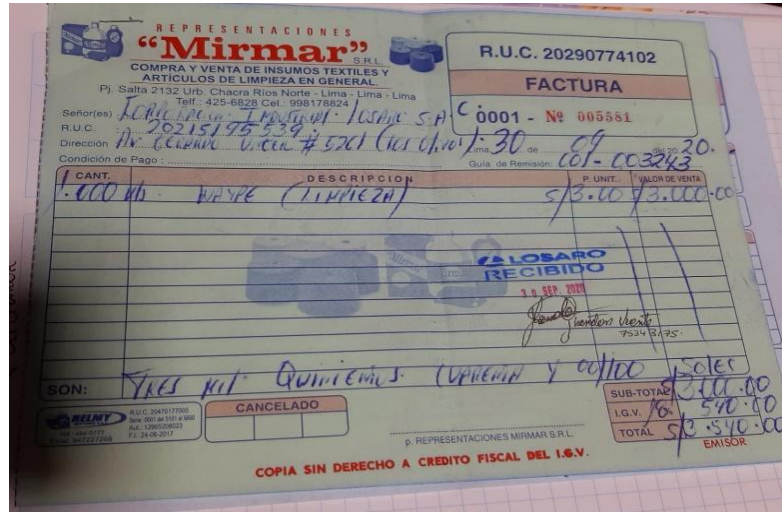 REPRESENTACIONES
"Mirmar" S.R.L.
COMPRA Y VENTA DE INSUMOS TEXTILES Y
ARTÍCULOS DE LIMPIEZA EN GENERAL.
Pj. Salta 2132 Urb. Chacra Ríos Norte - Lima - Lima - Lima
Telf.: 425-6828 Cel.: 998178824
R.U.C. 20290774102
FACTURA
0001 - Nº 005581
Señor(es) S.A.C.
R.U.C. : 20215195539
Dirección Av. # 5261 Lima 30 de 09 del 2020.
Condición de Pago : Guía de Remisión: 001-003243
CANT. DESCRIPCION P. UNIT. VALOR DE VENTA
1.000 WAYPE (LIMPIEZA) S/3.00 S/3.000.00
LOSARO
RECIBIDO
30 SEP. 2020
SON: TRES MIL QUINIENTOS CUARENTA Y 00/100 SOLES
SUB-TOTAL S/3.000.00
I.G.V. 18% 540.00
TOTAL S/3.540.00
EMISOR
CANCELADO
RELMY
R.U.C. 20470177005
p. REPRESENTACIONES MIRMAR S.R.L.
COPIA SIN DERECHO A CREDITO FISCAL DEL I.G.V.